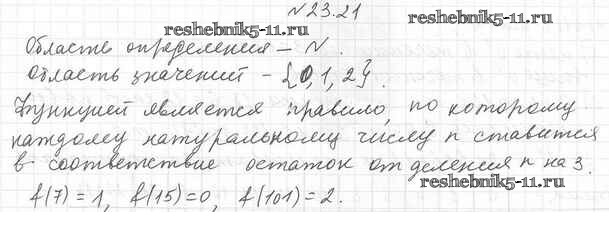 №23.21
reshebnik5-11.ru
Область определения – N.
область значений – {0, 1, 2}.
Функцией является правило, по которому
каждому натуральному числу n ставится
в соответствие остаток от деления n на 3.
reshebnik5-11.ru
f(7) = 1, f(15)=0, f(101)=2.